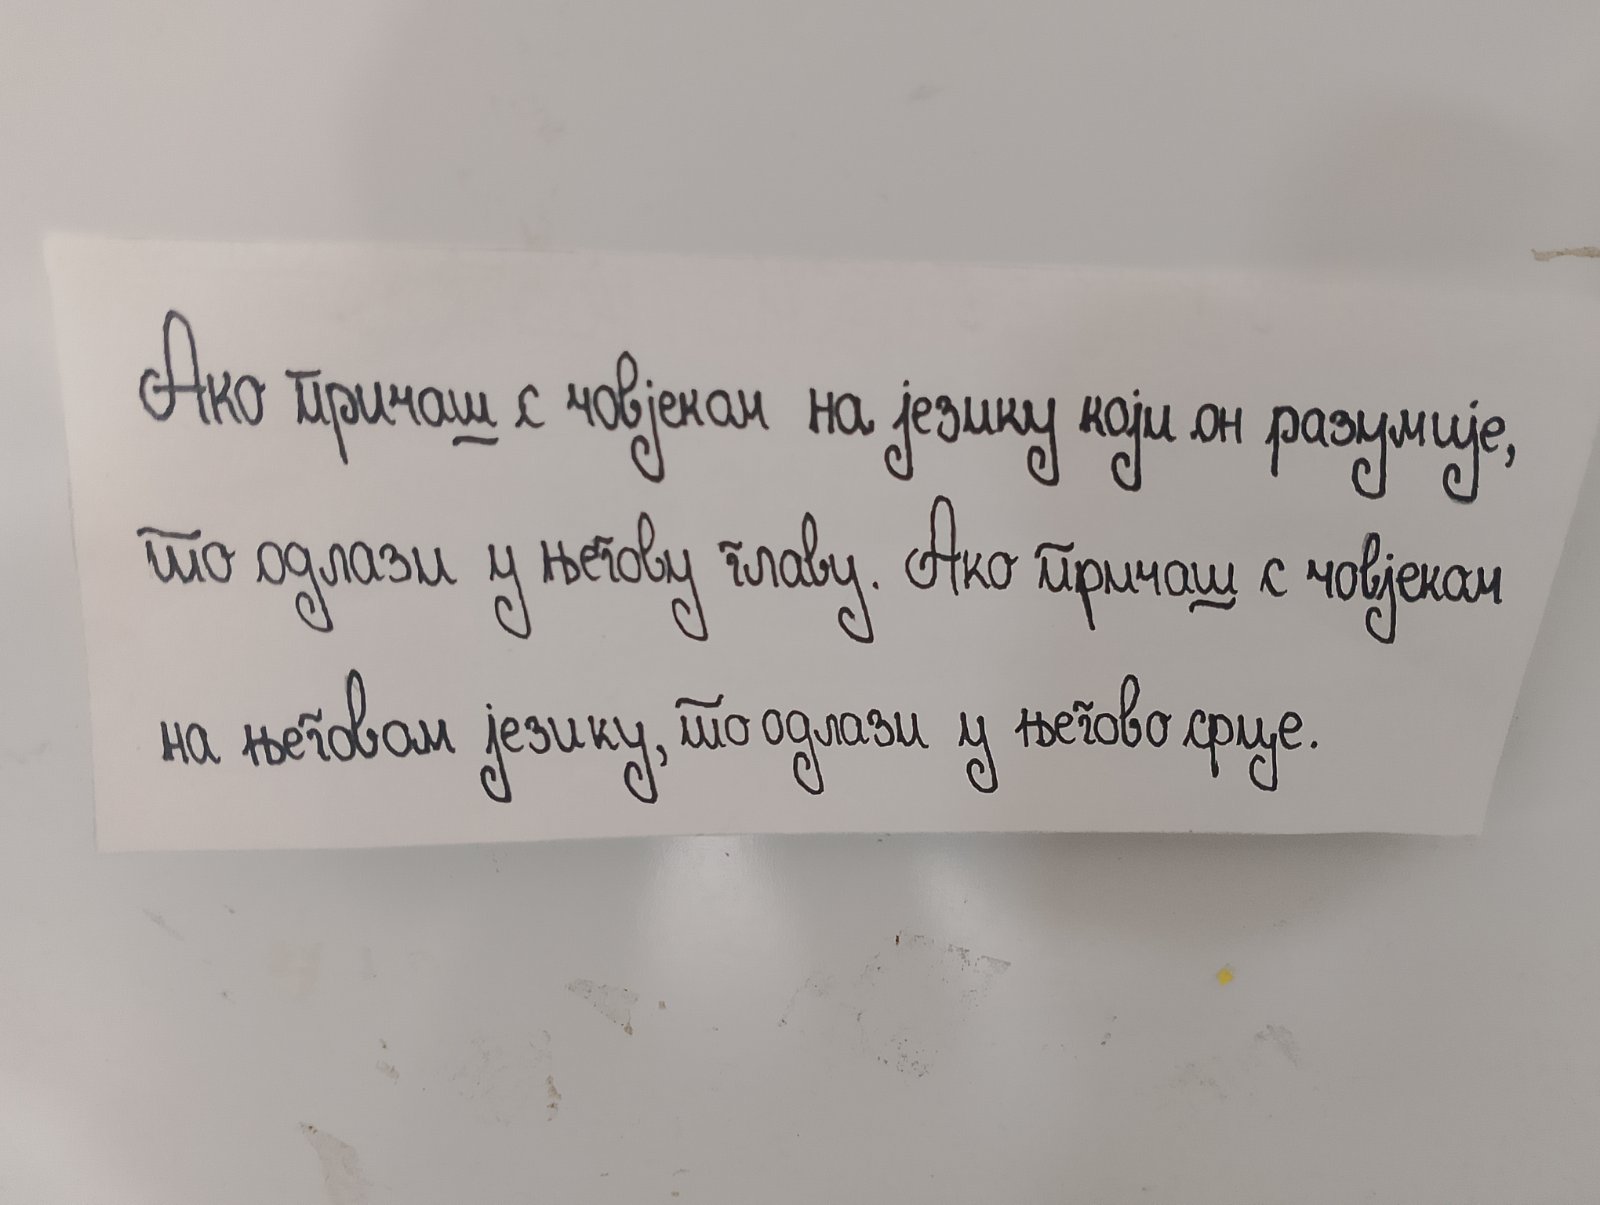 Ако причаш с човјеком на језику који он разумије,
то одлази у његову главу. Ако причаш с човјеком
на његовом језику, то одлази у његово срце.